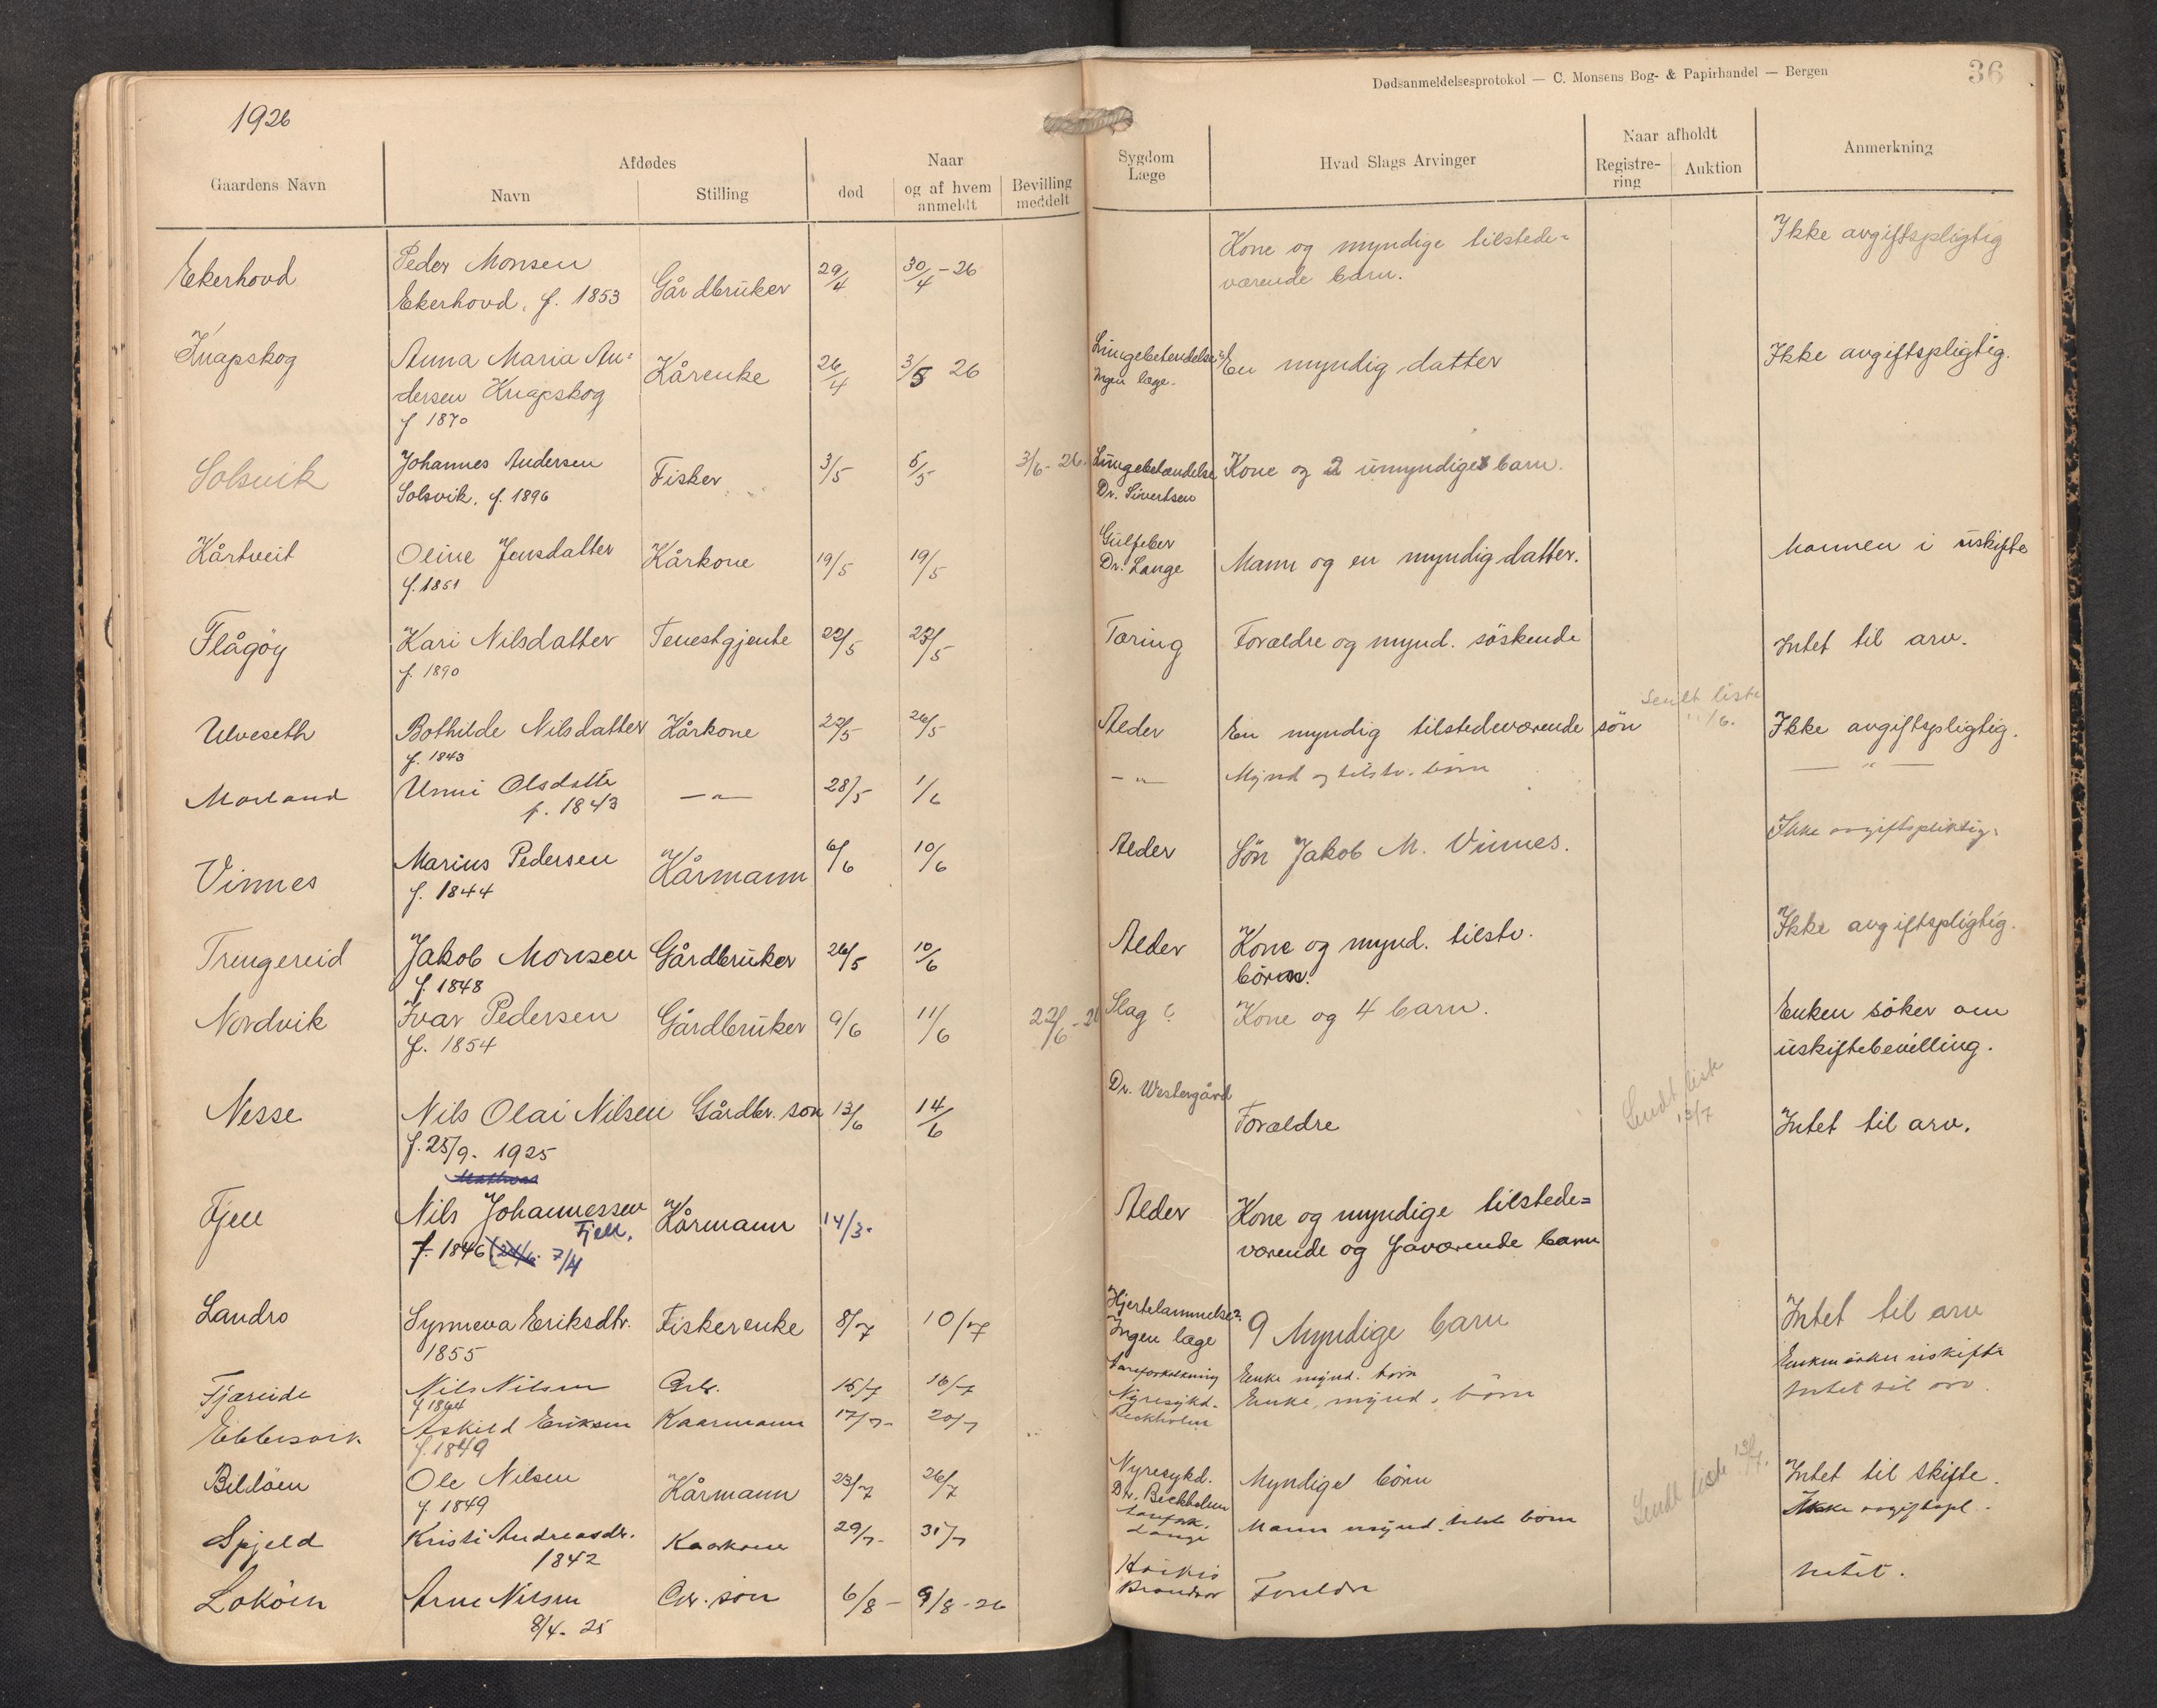 Dødsanmeldelsesprotokol — C. Monsens Bog- & Papirhandel — Bergen
36
1926
Gaardens Navn
Afdødes
Navn
Stilling
Naar
død
og af hvem anmeldt
Bevilling meddelt
Sygdom
Læge
Hvad Slags Arvinger
Naar afholdt
Registre-
ring
Auktion
Anmerkning
Ekerhovd
Peder Monsen
Ekerhovd, f. 1853
Gårdbruker
29/4
30/4-26
Kone og myndige tilstede=
værende barn.
Ikke avgiftspligtig
Knapskog
Anna Maria An=
dersen Knapskog
f 1870
Kårenke
26/4
3/5 26
Lungebetendelse?
Ingen læge.
En myndig datter
Ikke avgiftspligtig.
Solsvik
Johannes Andersen
Solsvik, f. 1896
Fisker
3/5
5/5
3/6-26.
Lungebetændelse
Dr. Sivertsen
Kone og 2 umyndige barn.
Kårtveit
Oline Jensdatter
f. 1851
Kårkone
19/5
19/5
Gulfeber
Dr. Lange
Mann og en myndig datter.
Mannen i uskifte
Flågöy
Kari Nilsdatter
f. 1890
Tenestgjente
22/5
27/5
Tæring
Forældre og mynd. söskende
Intet til arv.
Ulveseth
Bothilde Nilsdatter
f. 1843
Kårkone
22/5
26/5
Alder
En myndig tilstedeværende sön
Sendt liste
11/6.
Ikke avgiftspligtig.
Morland
Unni Olsdatte
f. 1843
— " —
28/5
1/6
— " —
Mynd og tilstv. börn
— " —
Vinnes
Marius Pedersen
f. 1844
Kårmann
6/6
10/6
Alder
Sön Jakob M. Vinnes.
Ikke avgiftspliktig.
Trengereid
Jakob Monsen
f. 1848
Gårdbruker
26/5
10/6
Alder
Kone og mynd. tilstv.
börn.
Ikke avgiftspligtig.
Nordvik
Ivar Pedersen
f. 1854
Gårdbruker
9/6
11/6
22/6-26
Slag ?
Kone og 4 barn.
Enken söker om
uskiftebevilling.
Nesse
Nils Olai Nilsen
f. 25/9. 1925
Gårdbr. son
13/6
14/6
Dr. Westergård
Forældre
Sendt liste
13/7
Intet til arv.
Fjell
Nils Johannessen
Fjell.
f. 1846 7/4
Kårmann
14/3.
Alder
Kone og myndige tilstede=
værende og fraværende barn
Landro
Synneva Eriksdtr.
1855
Fiskerenke
8/7
10/7
Hjertelammelse?
Ingen læge
9 Myndige barn
Intet til arv
Fjæreide
Nils Nilsen
f 1864
Gbr.
15/7
16/7
Aareforkalkning
Enke mynd. börn
Enken söker uskifte
Ebbesvik
Askild Eriksen
f. 1849
Kaarmann
17/7-
20/7
Nyresykd.
Beckholm
Enke, mynd. börn
Intet til arv.
Bildöen
Ole Nilsen
f. 1849
Kårmann
23/7
26/7
Nyresykd.
Dr. Beckholm
Myndige börn
Sendt liste 13/7.
Intet til skifte.
Spjeld
Kristi Andreasdr.
1842
Kaarkone
29/7-
31/7
Lange
Mann mynd. tilst börn
Ikke avgiftspl.
Loköen
Arne Nilsen
8/4- 25
Gbr. sön
6/8-
9/8-26
Foreldre
Intet.